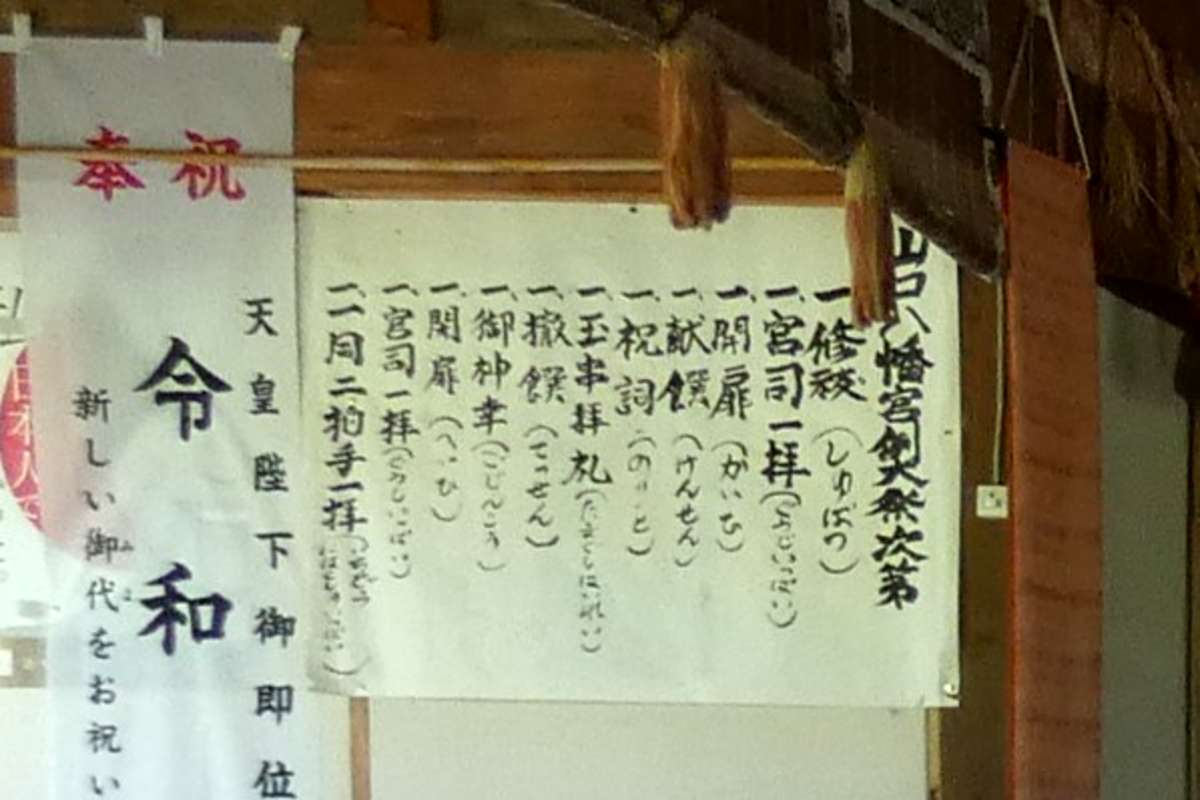 山口八幡宮例大祭次第
一、修祓(しゅばつ)
一、宮司一拝(ぐうじいっぱい)
一、開扉(かいひ)
一、献饌(けんせん)
一、祝詞(のりと)
一、玉串拝礼(たまぐしはいれい)
一、撤饌(てっせん)
一、御神幸(ごじんこう)
一、閉扉(へいひ)
一、宮司一拝(ぐうじいっぱい)
一、一同二拍手一拝
奉祝
天皇陛下御即位
令和
新しい御代をお祝い
みよ